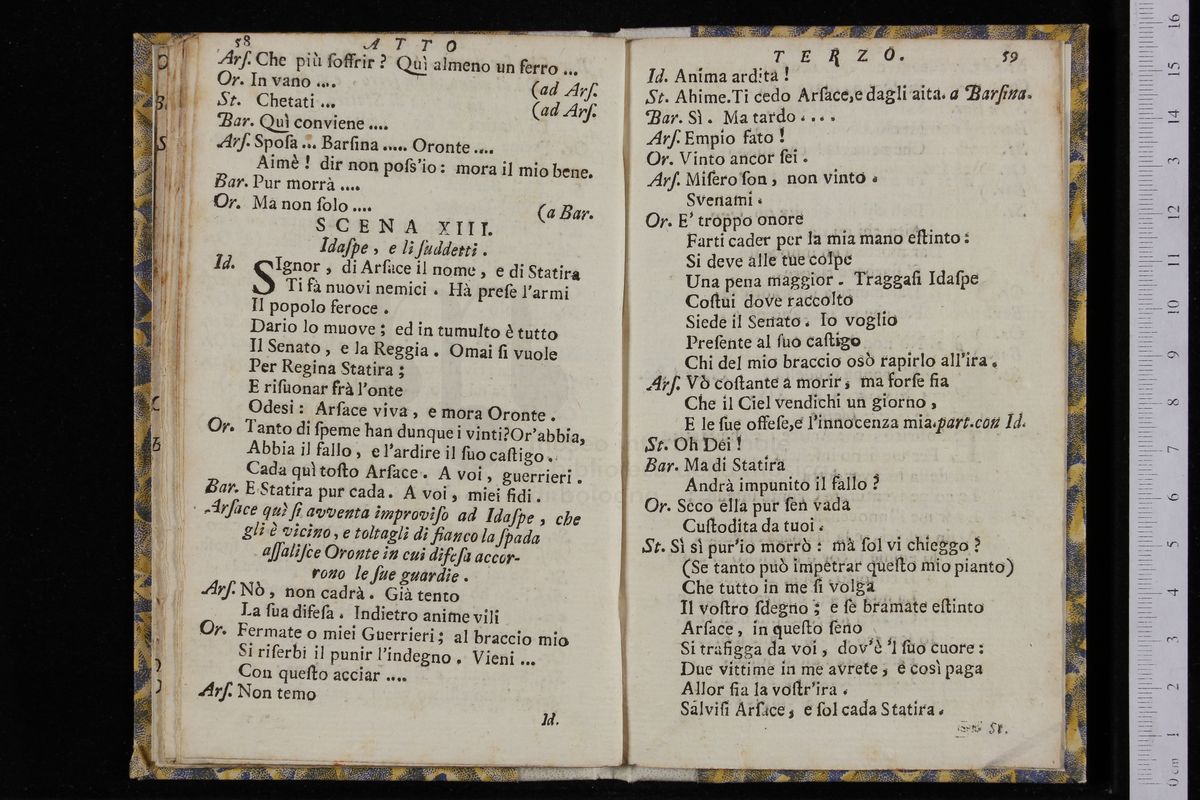 58 ATTO
Arſ. Che più ſoffrir? Quì almeno un ferro ...
Or. In vano .... (ad Arſ.
St. Chetati ... (ad Arſ.
Bar. Quì conviene ....
Arſ. Spoſa ... Barſina ..... Oronte ....
Aimè! dir non poſs'io: mora il mio bene.
Bar. Pur morrà ....
Or. Ma non ſolo .... (a Bar.
SCENA XIII.
Idaſpe, e li ſuddetti.
Id. SIgnor, di Arſace il nome, e di Statira
Ti fà nuovi nemici. Hà preſe l'armi
Il popolo feroce.
Dario lo muove; ed in tumulto è tutto
Il Senato, e la Reggia. Omai ſi vuole
Per Regina Statira;
E riſuonar frà l'onte
Odesi: Arſace viva, e mora Oronte.
Or. Tanto di ſpeme han dunque i vinti? Or'abbia,
Abbia il fallo, e l'ardire il ſuo caſtigo.
Cada quì toſto Arſace. A voi, guerrieri.
Bar. E Statira pur cada. A voi, miei fidi.
Arſace quì ſi avventa improviſo ad Idaſpe, che
gli è vicino, e toltagli di fianco la ſpada
aſſaliſce Oronte in cui difeſa accor-
rono le ſue guardie.
Arſ. Nò, non cadrà. Già tento
La ſua difeſa. Indietro anime vili
Or. Fermate o miei Guerrieri; al braccio mio
Si riſerbi il punir l'indegno. Vieni ...
Con queſto acciar ....
Arſ. Non temo
Id.
TERZO. 59
Id. Anima ardita!
St. Ahime. Ti cedo Arſace, e dagli aita. a Barſina.
Bar. Sì. Ma tardo ....
Arſ. Empio fato!
Or. Vinto ancor ſei.
Arſ. Miſero ſon, non vinto.
Svenami.
Or. E' troppo onore
Farti cader per la mia mano eſtinto:
Si deve alle tue colpe
Una pena maggior. Traggaſi Idaſpe
Coſtui dove raccolto
Siede il Senato. Io voglio
Preſente al ſuo caſtigo
Chi del mio braccio osò rapirlo all'ira.
Arſ. Vò coſtante a morir, ma forſe fia
Che il Ciel vendichi un giorno,
E le ſue offeſe, e l'innocenza mia. part. con Id.
St. Oh Dei!
Bar. Ma di Statira
Andrà impunito il fallo?
Or. Seco ella pur ſen vada
Cuſtodita da tuoi.
St. Sì sì pur'io morrò: mà ſol vi chieggo?
(Se tanto può impetrar queſto mio pianto)
Che tutto in me ſi volga
Il voſtro ſdegno; e ſe bramate eſtinto
Arſace, in queſto ſeno
Si trafigga da voi, dov'è 'l ſuo cuore:
Due vittime in me avrete, e così paga
Allor ſia la voſtr'ira.
Salviſi Arſace, e ſol cada Statira.
St.
0 cm 1 2 3 4 5 6 7 8 9 10 11 12 13 14 15 16